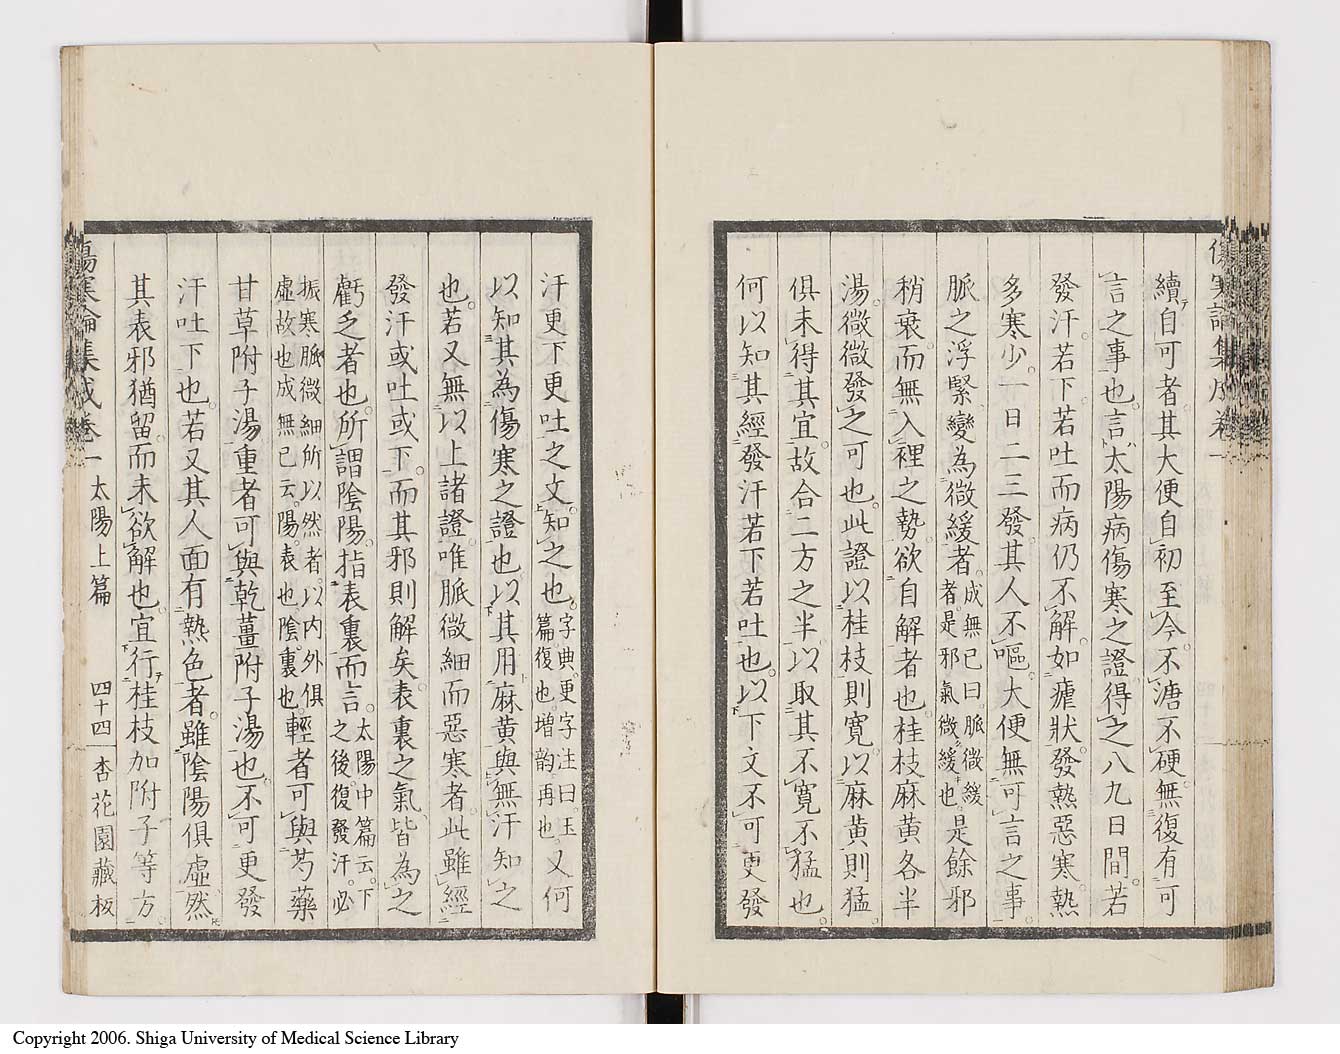 續自可者其大便自初至今不溏不硬無復有可
言之事也言太陽病傷寒之證得之八九日間若
發汗若下若吐而病仍不解如瘧狀發熱惡寒熱
多寒少一日二三發其人不嘔大便無可言之事
脈之浮緊變為微緩者成無已曰脈微緩者是邪氣微緩也是餘邪
稍衰而無入裡之勢欲自解者也桂枝麻黄各半
湯微微發之可也此證以桂枝則寬以麻黄則猛
俱未得其宜故合二方之半以取其不寬不猛也
何以知其經發汗若下若吐也以下文不可更發
汗更下更吐之文知之也字典更字注曰玉篇復也增韵再也又何
以知其為傷寒之證也以其用麻黄與無汗知之
也若又無以上諸證唯脈微細而惡寒者此雖經
發汗或吐或下而其邪則解矣表裏之氣皆為之
虧乏者也所謂陰陽指表裏而言太陽中篇云下之後復發汗必
振寒脈微細所以然者以内外俱虛故也成無已云陽表也陰裏也輕者可與芍藥
甘草附子湯重者可與乾薑附子湯也不可更發
汗吐下也若又其人面有熱色者雖陰陽俱虛然
其表邪猶留而未欲解也宜行桂枝加附子等方
傷寒論集成卷一 太陽上篇 四十四 杏花園藏板